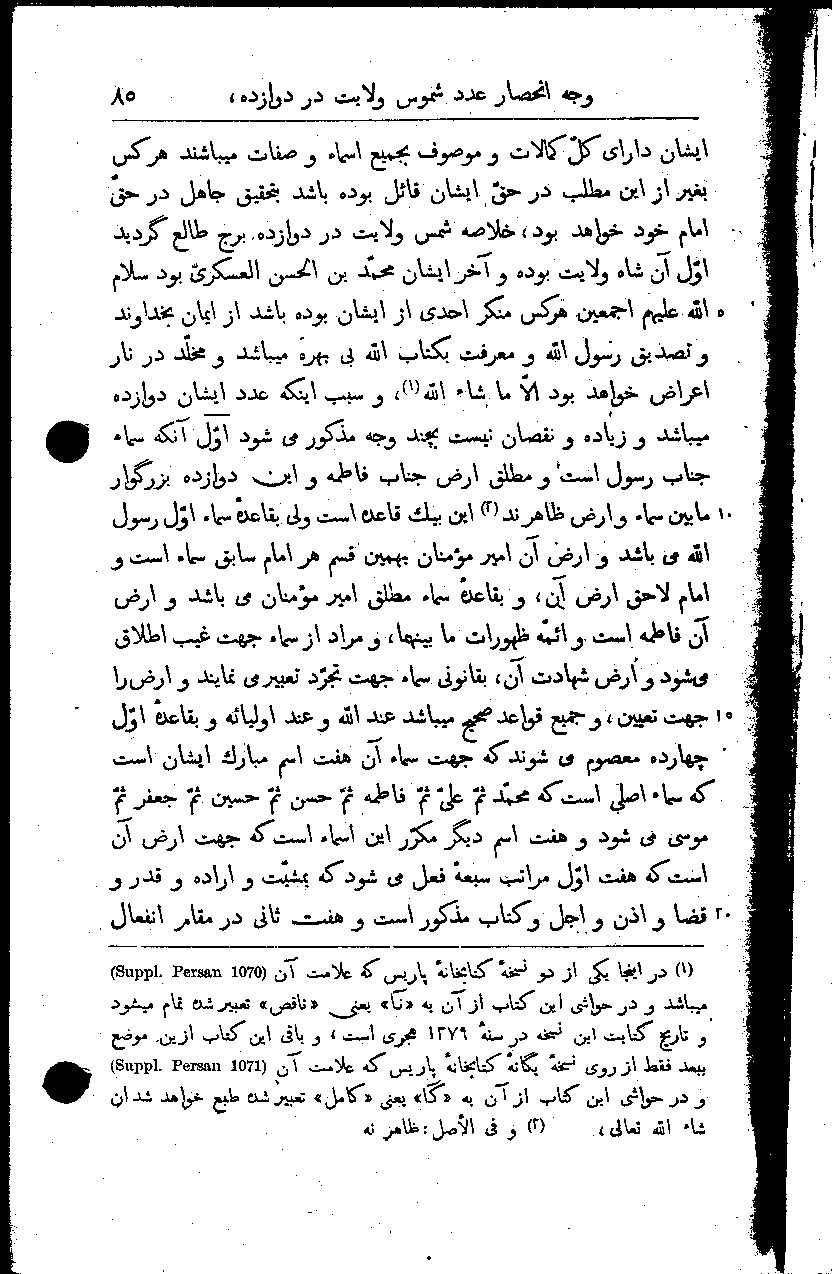 وجه انحصار عدد شموس ولایت در دوازده، ۸۵
ایشان دارای کلّ کمالات و موصوف بجمیع اسماء و صفات میباشند هرکس
بغیر از این مطلب در حقّ ایشان قائل بوده باشد بتحقیق جاهل در حقّ
امام خود خواهد بود، خلاصه شمس ولایت در دوازده برج طالع گردید
اوّل آن شاه ولایت بوده و آخر ایشان محمّد بن الحسن العسکریّ بود سلام
۵ الله علیهم اجمعین هرکس منکر احدی از ایشان بوده باشد از ایمان بخداوند
و تصدیق رسول الله و معرفت بکتاب الله بی بهره میباشد و مخلّد در نار
اعراض خواهد بود الاّ ما شاء الله(۱)، و سبب اینکه عدد ایشان دوازده
میباشد و زیاده و نقصان نیست بچند وجه مذکور می شود اوّل آنکه سماء
جناب رسول است و مطلق ارض جناب فاطمه و این دوازده بزرگوار
۱۰ مابین سماء و ارض ظاهرند(۲) این بیك قاعده است ولی بقاعدهٔ سماء اوّل رسول
الله می باشد و ارض آن امیر مؤمنان بهمین قسم هر امام سابق سماء است و
امام لاحق ارض آن، و بقاعدهٔ سماء مطلق امیر مؤمنان می باشد و ارض
آن فاطمه است و ائمّه ظهورات ما بینهما، و مراد از سماء جهت غیب اطلاق
می‌شود و ارض شهادت آن، بقانونی سماء جهت تجرّد تعبیر می نمایند و ارض را
۱۵ جهت تعیین، و جمیع قواعد صحیح میباشد عند الله و عند اولیائه و بقاعدهٔ اوّل
چهارده معصوم می شوند که جهت سماء آن هفت اسم مبارك ایشان است
که سماء اصلی است که محمّد ثمّ علیّ ثمّ فاطمه ثمّ حسن ثمّ حسین ثمّ جعفر ثمّ
موسی می شود و هفت اسم دیگر مکرّر این اسماء است که جهت ارض آن
است که هفت اوّل مراتب سبعهٔ فعل می شود که بمشیّت و اراده و قدر و
۲۰ قضا و اذن و اجل و کتاب مذکور است و هفت ثانی در مقام انفعال
(۱) در اینجا یکی از دو نسخهٔ کتابخانهٔ پاریس که علامت آن (Suppl. Persan 1070)
میباشد و در حواشی این کتاب از آن به «نا» یعنی «ناقص» تعبیر شده تمام میشود
و تاریخ کتابت این نسخه در سنهٔ ۱۲۷۹ هجری است، و باقی این کتاب ازین موضع
ببعد فقط از روی نسخهٔ یگانهٔ کتابخانهٔ پاریس که علامت آن (Suppl. Persan 1071)
و در حواشی این کتاب از آن به «کا» یعنی «کامل» تعبیر شده طبع خواهد شد ان
شاء الله تعالی، (۲) و فی الأصل: ظاهر نه